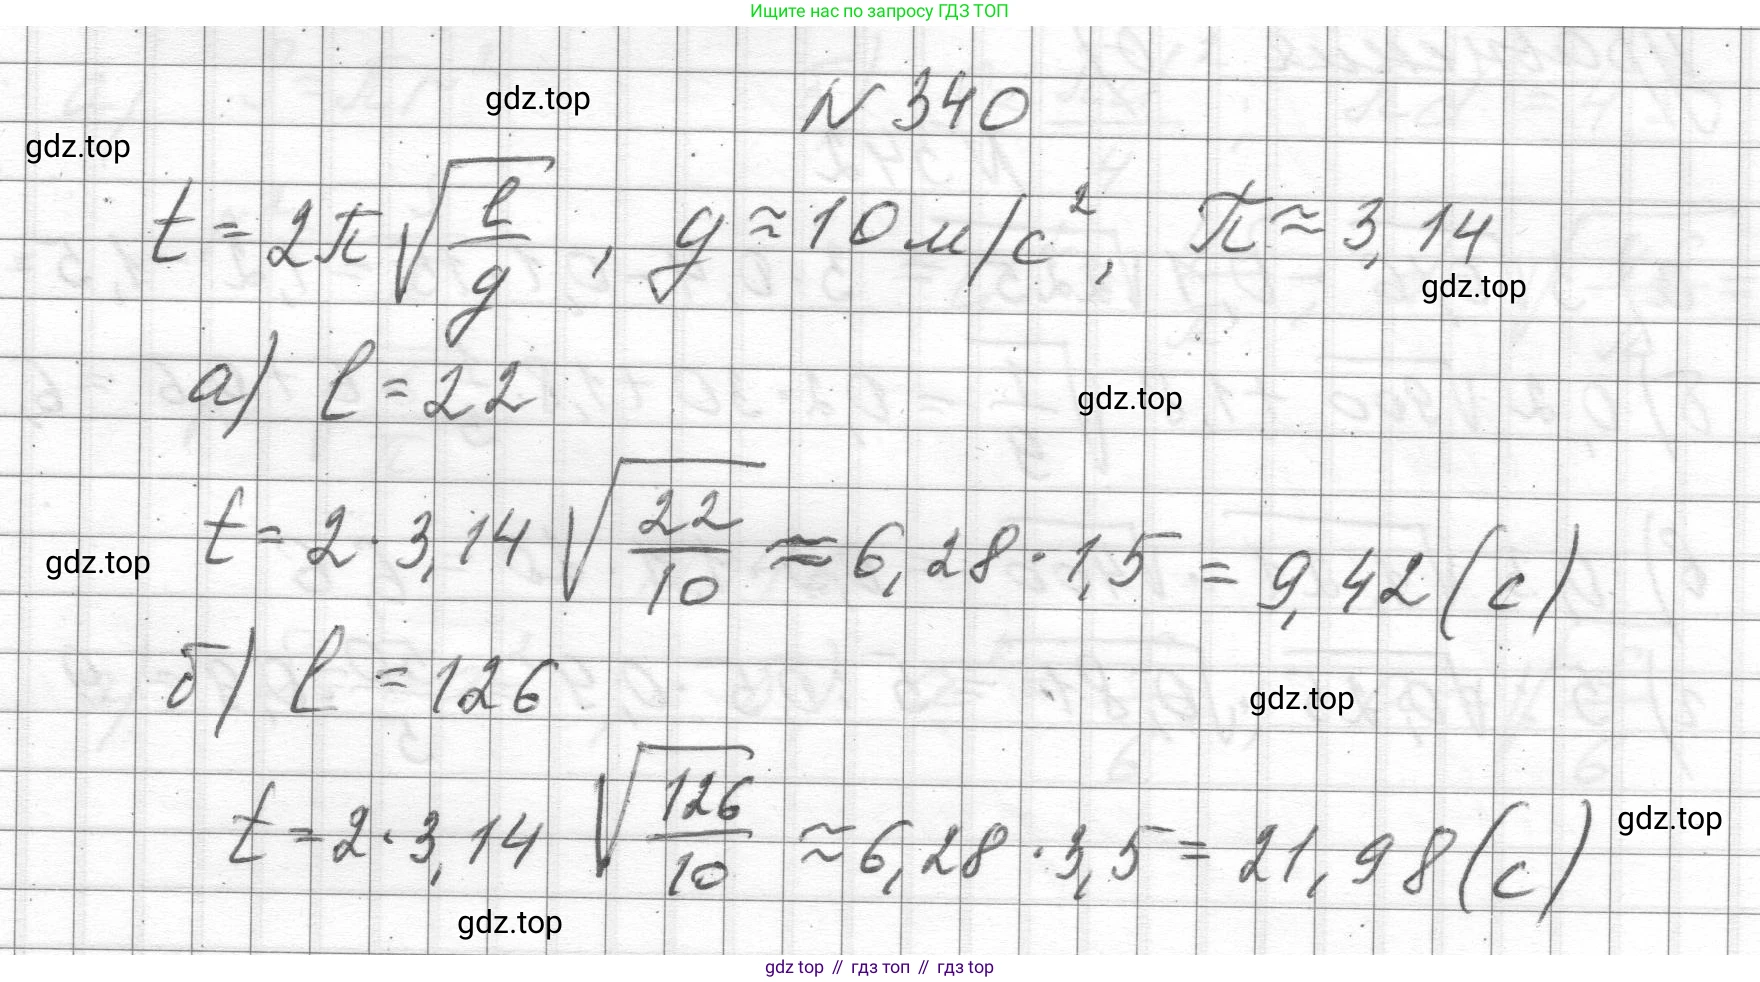 Ищите нас по запросу ГДЗ ТОП
gdz.top
N 340
gdz.top
t = 2π√(l/g), g ≈ 10 м/с², π ≈ 3,14
gdz.top
а) l = 22
gdz.top
t = 2 · 3,14 √(22/10) ≈ 6,28 · 1,5 = 9,42 (с)
gdz.top
б) l = 126
gdz.top
t = 2 · 3,14 √(126/10) ≈ 6,28 · 3,5 = 21,98 (с)
gdz.top
gdz.top
gdz top // гдз топ // гдз top